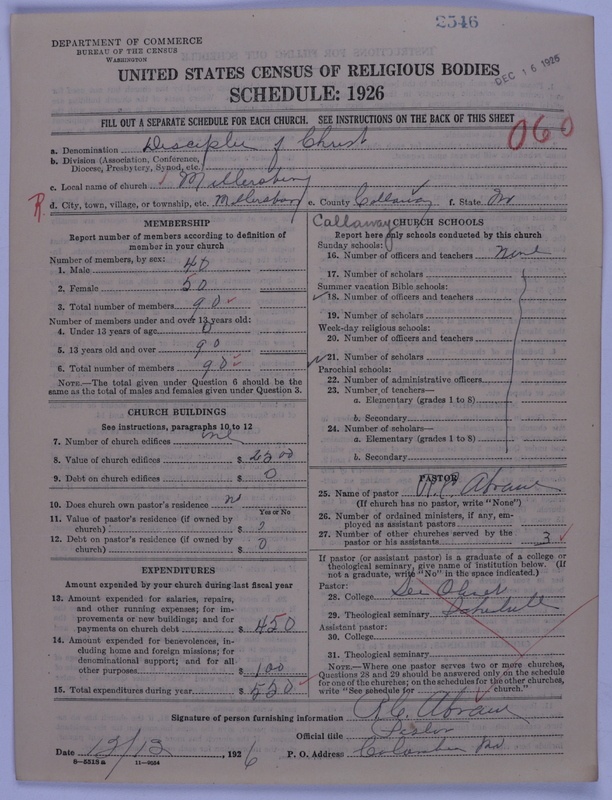 2546
DEPARTMENT OF COMMERCE
BUREAU OF THE CENSUS
WASHINGTON
DEC 16 1926
UNITED STATES CENSUS OF RELIGIOUS BODIES
SCHEDULE: 1926
FILL OUT A SEPARATE SCHEDULE FOR EACH CHURCH. SEE INSTRUCTIONS ON THE BACK OF THIS SHEET
060
a. Denomination Disciples of Christ
b. Division (Association, Conference, Diocese, Presbytery, Synod, etc.
c. Local name of church Millersburg
R d. City, town, village, or township, etc. Millersburg e. County Callaway f. State Mo
MEMBERSHIP
Report number of members according to definition of member in your church
Number of members, by sex:
1. Male 40
2. Female 50
3. Total number of members 90
Number of members under and over 13 years old:
4. Under 13 years of age 0
5. 13 years old and over 90
6. Total number of members 90
NOTE.—The total given under Question 6 should be the same as the total of males and females given under Question 3.
CHURCH BUILDINGS
See instructions, paragraphs 10 to 12
7. Number of church edifices one
8. Value of church edifices $ 2500
9. Debt on church edifices $ 0
10. Does church own pastor's residence no
Yes or No
11. Value of pastor's residence (if owned by church) $
12. Debt on pastor's residence (if owned by church) $ 0
EXPENDITURES
Amount expended by your church during last fiscal year
13. Amount expended for salaries, repairs, and other running expenses; for improvements or new buildings; and for payments on church debt $ 450
14. Amount expended for benevolences, including home and foreign missions; for denominational support; and for all other purposes $ 100
15. Total expenditures during year $ 550
Callaway
CHURCH SCHOOLS
Report here only schools conducted by this church
Sunday schools:
16. Number of officers and teachers None
17. Number of scholars
Summer vacation Bible schools:
18. Number of officers and teachers
19. Number of scholars
Week-day religious schools:
20. Number of officers and teachers
21. Number of scholars
Parochial schools:
22. Number of administrative officers
23. Number of teachers—
a. Elementary (grades 1 to 8)
b. Secondary
24. Number of scholars—
a. Elementary (grades 1 to 8)
b. Secondary
PASTOR
25. Name of pastor R. C. Abram
(If church has no pastor, write "None")
26. Number of ordained ministers, if any, employed as assistant pastors
27. Number of other churches served by the pastor or his assistants 3
If pastor (or assistant pastor) is a graduate of a college or theological seminary, give name of institution below. (If not a graduate, write "No" in the space indicated.)
Pastor:
28. College See Other
29. Theological seminary Schedule
Assistant pastor:
30. College
31. Theological seminary
NOTE.—Where one pastor serves two or more churches, Questions 28 and 29 should be answered only on the schedule for one of the churches; on the schedules for the other churches, write "See schedule for church."
Signature of person furnishing information R. C. Abram
Official title Pastor
Date 12/13, 1926 P. O. Address Columbia Mo
8—5518a 11—9054